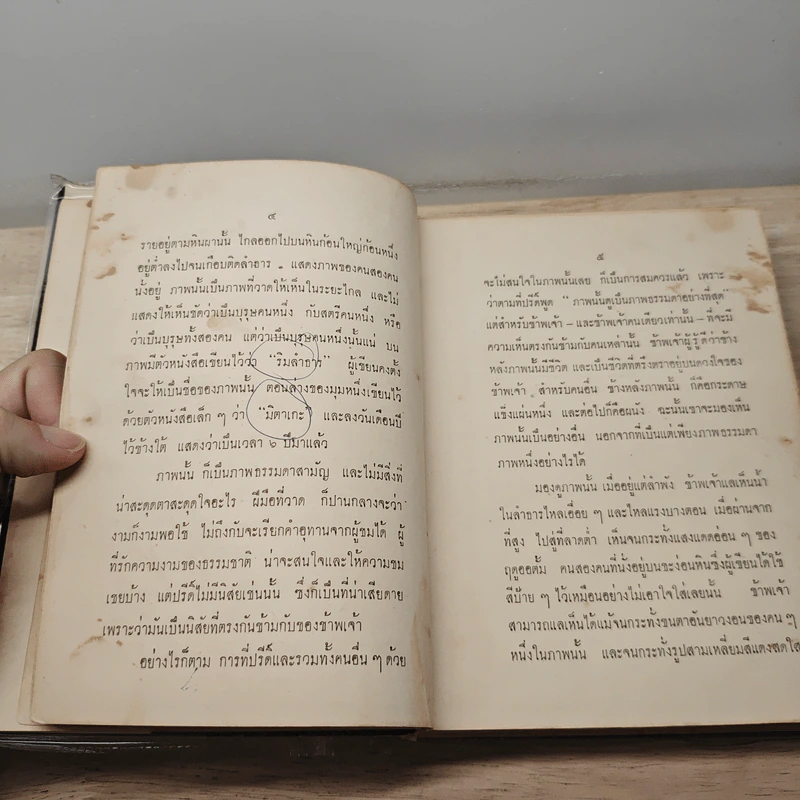 ๔
รายอยู่ตามหินผานั้น ไกลออกไปบนหินก้อนใหญ่ก้อนหนึ่ง
อยู่ต่ำลงไปจนเกือบติดลำธาร แสดงภาพของคนสองคน
นั่งอยู่ ภาพนั้นเป็นภาพที่วาดให้เห็นในระยะไกล และไม่
แสดงให้เห็นชัดว่าเป็นบุรุษคนหนึ่ง กับสตรีคนหนึ่ง หรือ
ว่าเป็นบุรุษทั้งสองคน แต่ว่าเป็นบุรุษคนหนึ่งนั้นแน่ บน
ภาพมีตัวหนังสือเขียนไว้ว่า “ริมลำธาร” ผู้เขียนคงตั้ง
ใจจะให้เป็นชื่อของภาพนั้น ตอนล่างของมุมหนึ่งเขียนไว้
ด้วยตัวหนังสือเล็ก ๆ ว่า “มิตาเกะ” และลงวันเดือนปี
ไว้ข้างใต้ แสดงว่าเป็นเวลา ๖ ปีมาแล้ว
ภาพนั้น ก็เป็นภาพธรรมดาสามัญ และไม่มีสิ่งที่
น่าสะดุดตาสะดุดใจอะไร ฝีมือที่วาด ก็ปานกลางจะว่า
งามก็งามพอใช้ ไม่ถึงกับจะเรียกคำอุทานจากผู้ชมได้ ผู้
ที่รักความงามของธรรมชาติ น่าจะสนใจและให้ความชม
เชยบ้าง แต่ปรีดิ์ไม่มีนิสัยเช่นนั้น ซึ่งก็เป็นที่น่าเสียดาย
เพราะว่ามันเป็นนิสัยที่ตรงกันข้ามกับของข้าพเจ้า
อย่างไรก็ตาม การที่ปรีดิ์และรวมทั้งคนอื่น ๆ ด้วย
๕
จะไม่สนใจในภาพนั้นเลย ก็เป็นการสมควรแล้ว เพราะ
ว่าตามที่ปรีดิ์พูด “ภาพนั้นดูเป็นภาพธรรมดาอย่างที่สุด”
แต่สำหรับข้าพเจ้า – และข้าพเจ้าคนเดียวเท่านั้น – ที่จะมี
ความเห็นตรงกันข้ามกับคนเหล่านั้น ข้าพเจ้าผู้รู้ดีว่าข้าง
หลังภาพนั้นมีชีวิต และเป็นชีวิตที่ตรึงตราอยู่บนดวงใจของ
ข้าพเจ้า สำหรับคนอื่น ข้างหลังภาพนั้น ก็คือกระดาษ
แข็งแผ่นหนึ่ง และต่อไปก็คือผนัง ฉะนั้นเขาจะมองเห็น
ภาพนั้นเป็นอย่างอื่น นอกจากที่เป็นแต่เพียงภาพธรรมดา
ภาพหนึ่งอย่างไรได้
มองดูภาพนั้น เมื่ออยู่แต่ลำพัง ข้าพเจ้าแลเห็นน้ำ
ในลำธารไหลเอื่อย ๆ และไหลแรงบางตอน เมื่อผ่านจาก
ที่สูง ไปสู่ที่ลาดต่ำ เห็นจนกระทั่งแสงแดดอ่อน ๆ ของ
ฤดูออตั้ม คนสองคนที่นั่งอยู่บนชะง่อนหินซึ่งผู้เขียนได้ใช้
สีป้าย ๆ ไว้เหมือนอย่างไม่เอาใจใส่เลยนั้น ข้าพเจ้า
สามารถแลเห็นได้แม้จนกระทั่งขนตาอันยาวงอนของคน ๆ
หนึ่งในภาพนั้น และจนกระทั่งรูปสามเหลี่ยมสีแดงสดใส